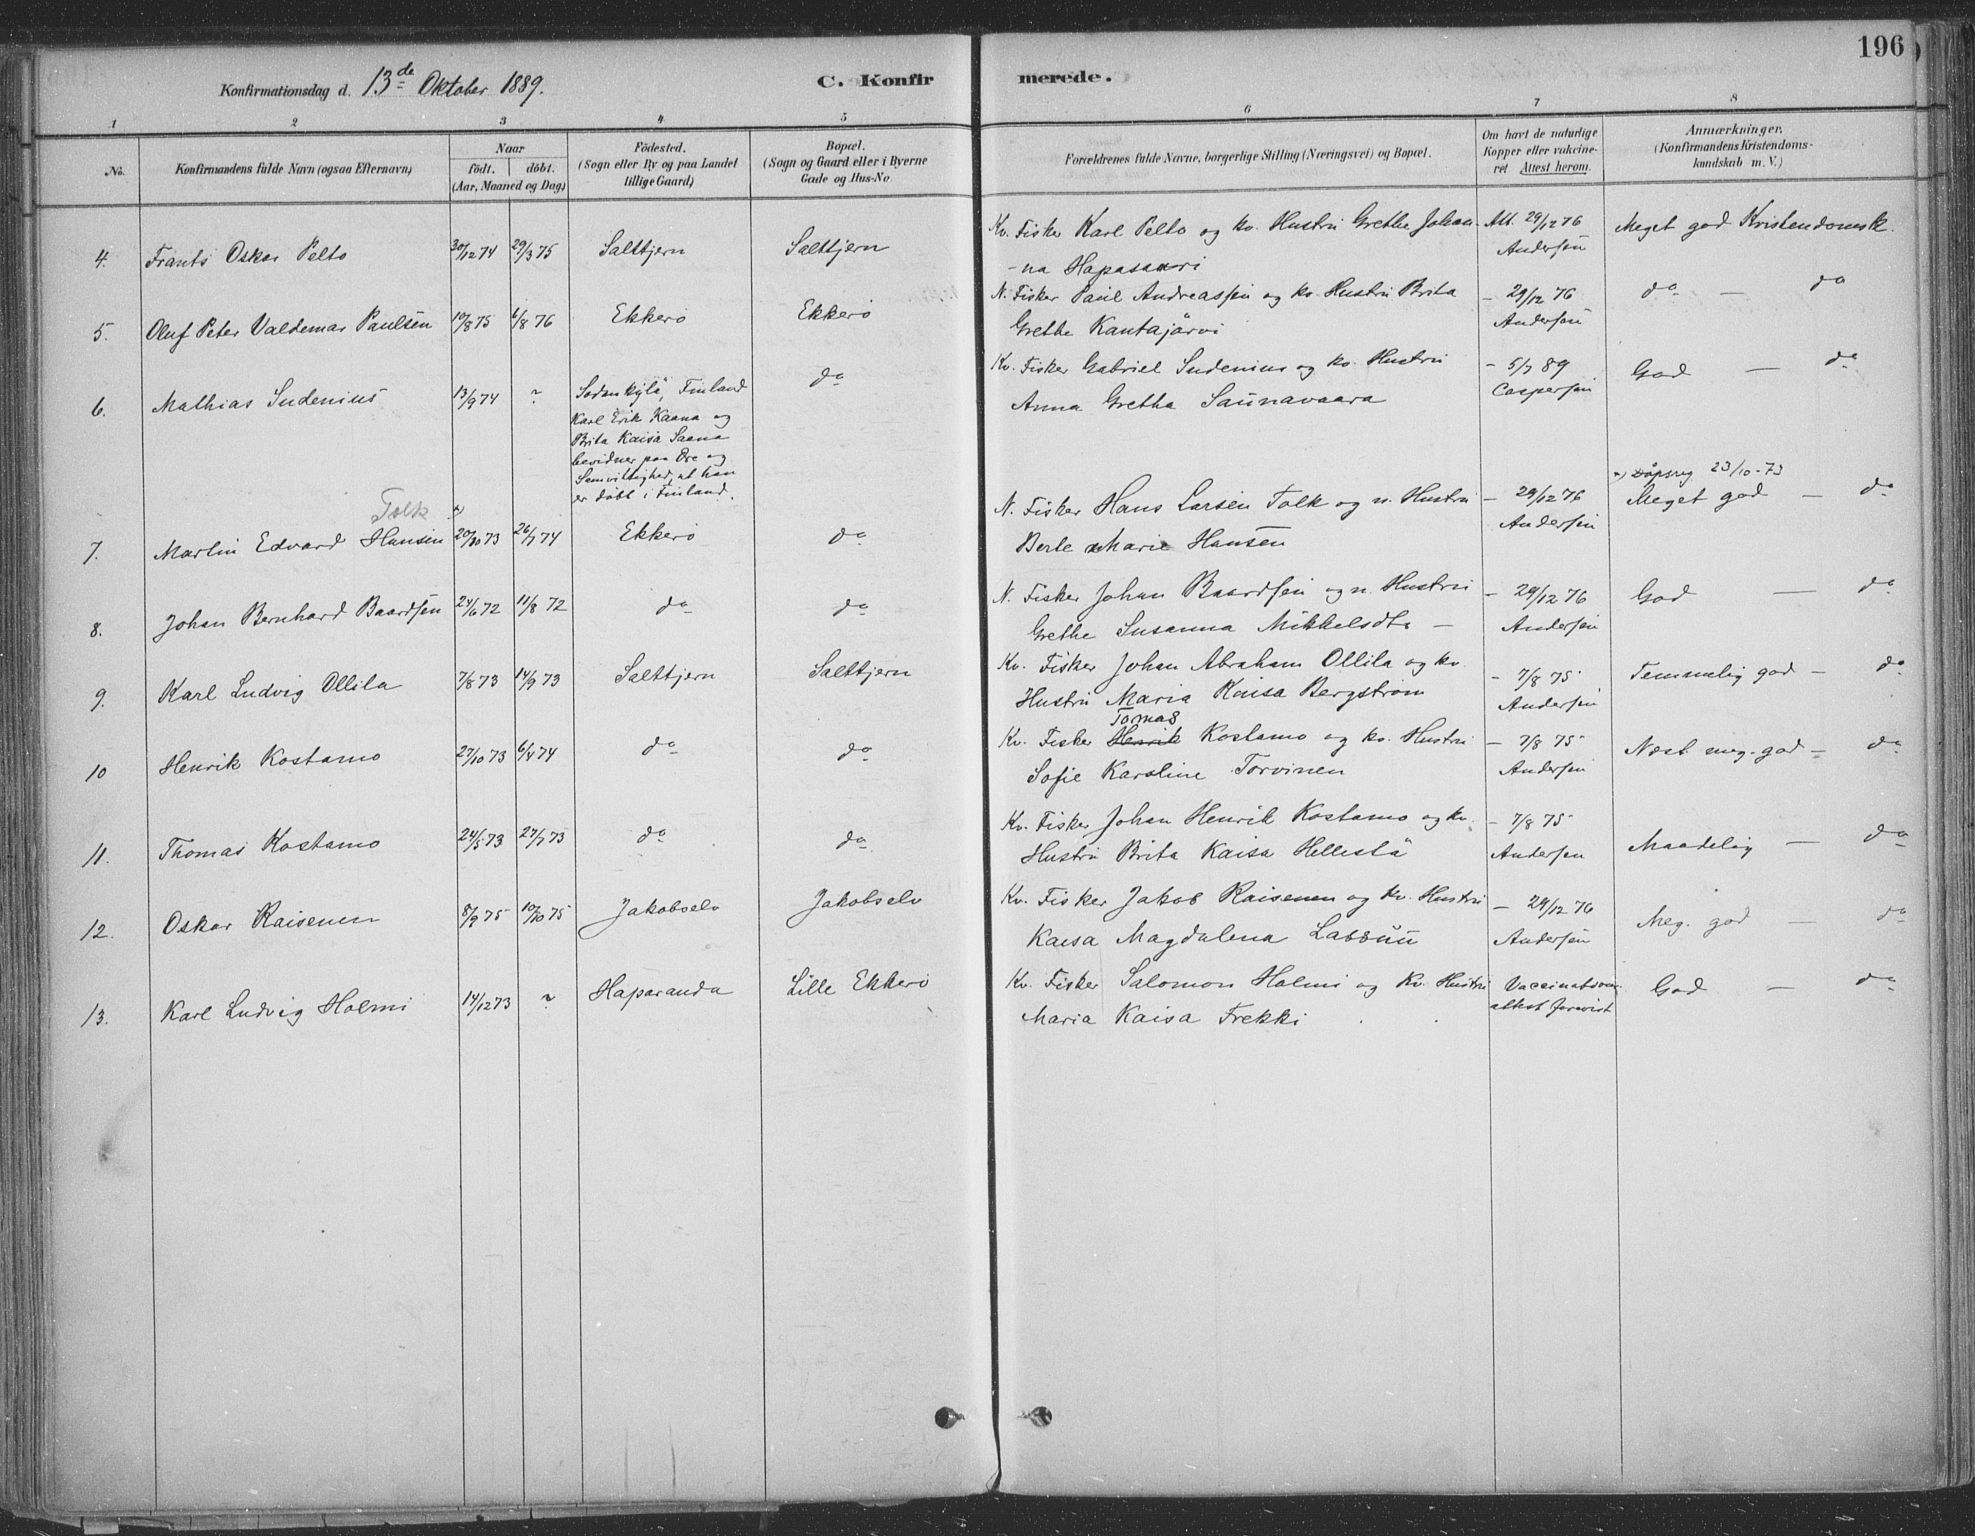 196
Konfirmationsdag d. 13de Oktober 1889.
C. Konfirmerede.
1 2 3 4 5 6 7 8
No. Konfirmandens fulde Navn (ogsaa Efternavn) Naar födt. döbt. (Aar, Maaned og Dag) Födested. (Sogn eller By og paa Landet tillige Gaard) Bopæl. (Sogn og Gaard eller i Byerne Gade og Hus-No Forældrenes fulde Navne, borgerlige Stilling (Næringsvei) og Bopæl. Om havt de naturlige Kopper eller vakcineret Attest herom. Anmærkninger. (Konfirmandens Kristendomskundskab m. V.)
4. Frants Oskar Pelto 30/12 74 29/3 75 Salttjern Salttjern Kv. Fisker Karl Pelto og kv. Hustru Grethe Johan- Att. 29/12 76 Meget god Kristendomsk.
-na Hapasaari Andersen
5. Oluf Peter Valdemar Paulsen 10/8 75 6/8 76 Ekkerö Ekkerö N. Fisker Paul Andreassen og kv. Hustru Brita - 29/12 76 do - do
Grethe Kantajärvi Andersen
6. Mathias Sudenius 13/9 74 ~ Sodankylä, Finland do Kv. Fisker Gabriel Sudenius og kv. Hustru - 5/7 89 God - do
Karl Erik Kaana og Anna Gretha Saunavaara Caspersen
Brita Kaisa Saana
bevidner paa Ære og
Samvittighed, at han
er döbt i Finland.
x) Dåpsreg 23/10-73
Tolk x)
7. Martin Edvard Hansen 20/10 73 26/7 74 Ekkerö do N. Fisker Hans Larsen Tolk og n. Hustru - 29/12 76 Meget god - do
Berle Marie Hansen Andersen
8. Johan Bernhard Baardsen 24/6 72 11/8 72 do do N. Fisker Johan Baardsen og n. Hustru - 29/12 76 God - do
Grethe Susanna Mikkelsdtr - Andersen
9. Karl Ludvig Ollila 7/8 73 14/9 73 Salttjern Salttjern Kv. Fisker Johan Abraham Ollila og kv. - 7/8 75 Temmelig god - do
Hustru Maria Kaisa Bergström Andersen
Tomas
10 Henrik Kostamo 27/10 73 6/4 74 do do Kv. Fisker Henrik Kostamo og kv. Hustru - 7/8 75 Næst meg. god - do
Sofie Karoline Torvinen Andersen
11. Thomas Kostamo 24/5 73 27/7 73 do do Kv. Fisker Johan Henrik Kostamo og kv. - 7/8 75 Maadelig - do
Hustru Brita Kaisa Hellestä Andersen
12. Oskar Raisenen 8/9 75 10/10 75 Jakobselv Jakobselv Kv. Fisker Jakob Raisenen og kv. Hustru - 29/12 76 Meg. god - do
Kaisa Magdalena Andersen
13. Karl Ludvig Holmi 14/12 73 ~ Haparanda Lille Ekkerö Kv. Fisker Salomon Holmi og Kv. Hustru Vaccinations- God - do
Maria Kaisa Frekki attest forevist